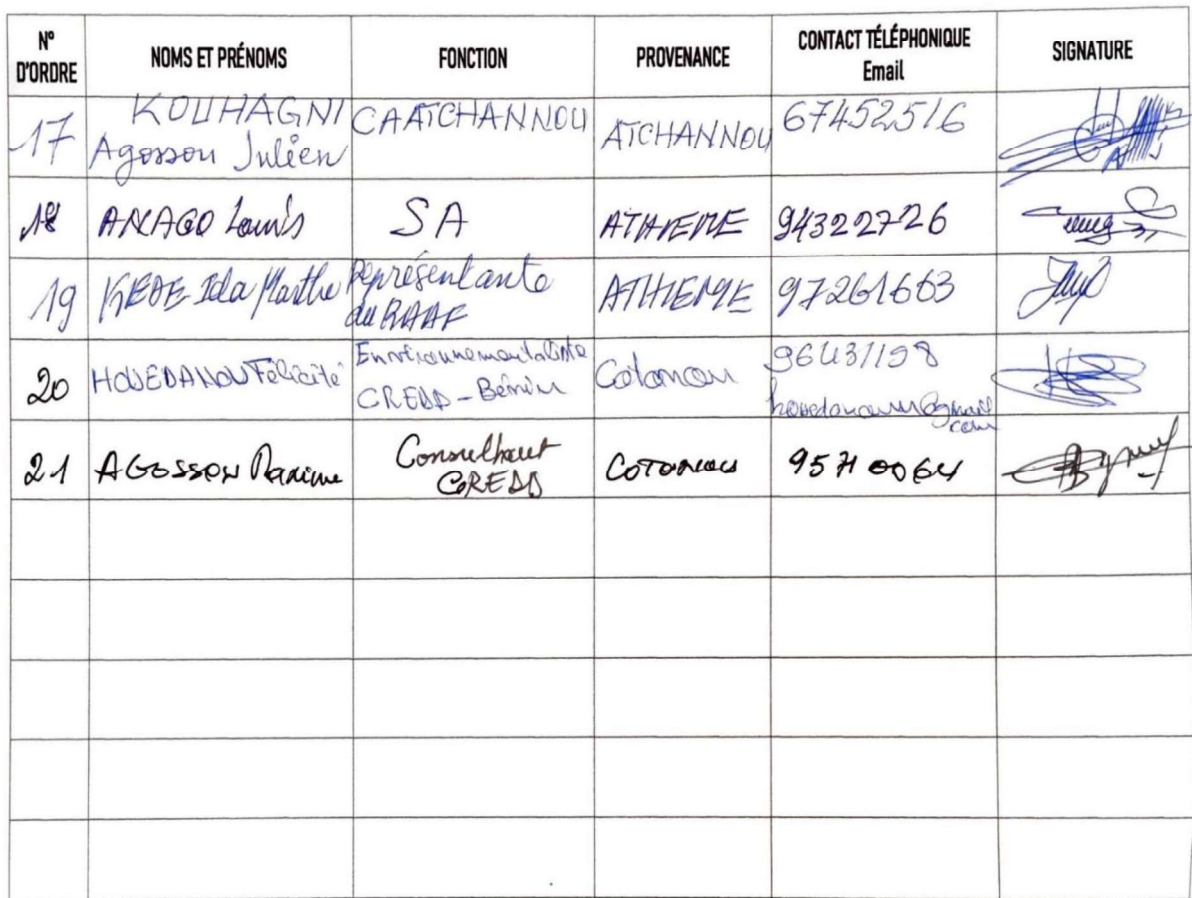 N° D'ORDRE NOMS ET PRÉNOMS FONCTION PROVENANCE CONTACT TÉLÉPHONIQUE Email SIGNATURE
17 KOUHAGNI Agosson Julien CAATCHANNOU ATCHANNOU 67452516
18 ANAGO Louis SA ATHIEME 94322726
19 KEDE Ida Marthe Représentante du RAAF ATHIEME 97261663
20 HOUEDANOU Félicité Environnementaliste CREDD-Bénin Cotonou 96431198
21 AGOSSOU Maxime Consultant CREDD COTONOU 95710064